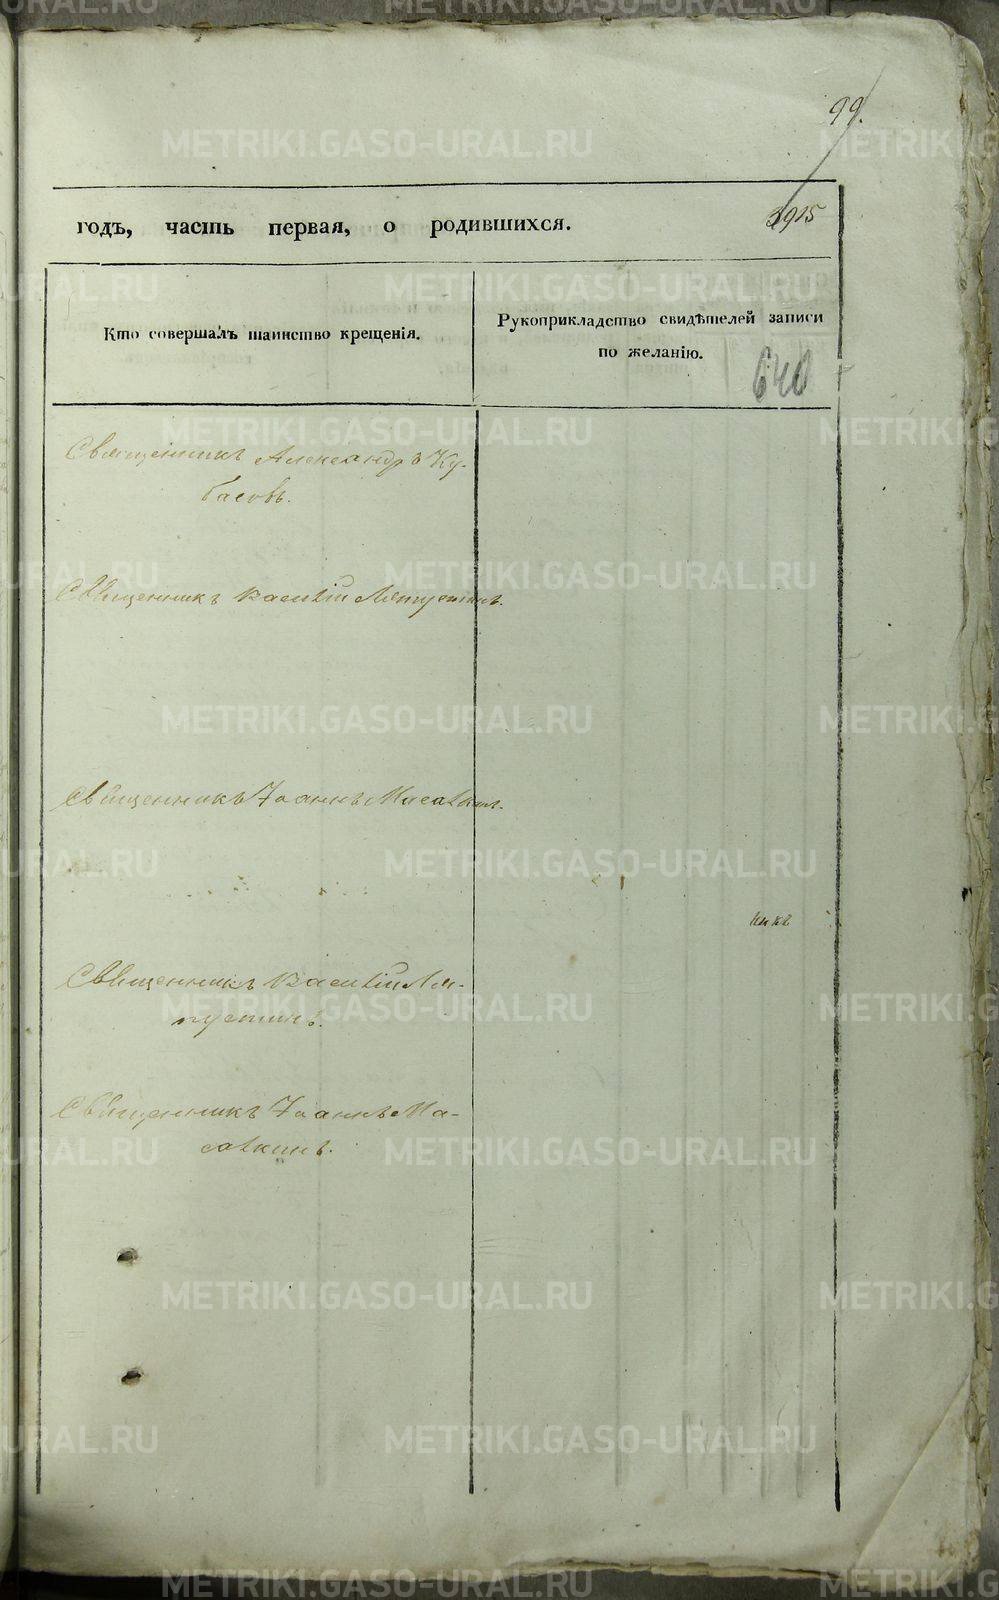 99.
годъ, часть первая, о родившихся.
Кто совершалъ таинство крещенія.
Рукоприкладство свидѣтелей записи
по желанію.
640
Священникъ Александръ Ку-
басовъ.
Священникъ Василій Ляпустинъ.
Священникъ Іоаннъ
никъ
Священникъ Василій Ля-
пустинъ.
Священникъ Іоаннъ
METRIKI.GASO-URAL.RU